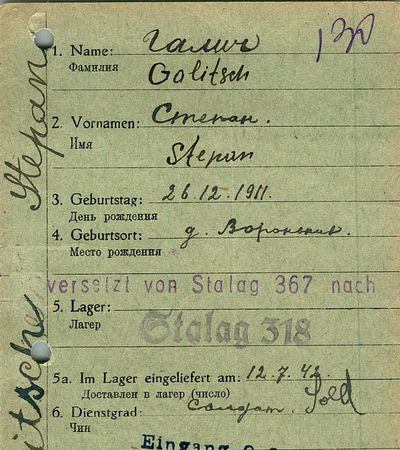 130
1. Name: галич
Фамилия Golitsch
2. Vornamen: Степан.
Имя
Stepan
3. Geburtstag: 26.12.1911.
День рождения
4. Geburtsort: д.
Место рождения
versetzt von Stalag 367 nach
5. Lager:
Лагер Stalag 318
5a. Im Lager eingeliefert am: 12.7.42
Доставлен в лагер (число)
6. Dienstgrad: Солдат. Sold
Чин
Eingang
Stepan